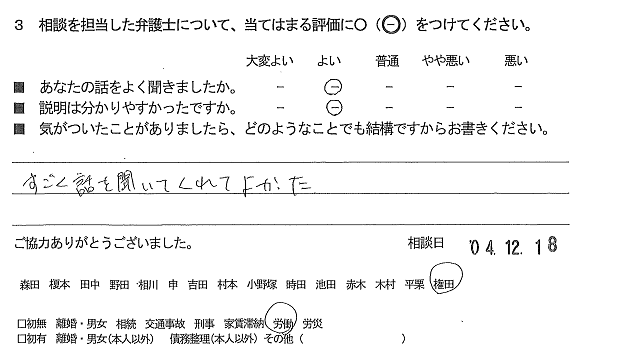 3 相談を担当した弁護士について、当てはまる評価に○(⊖)をつけてください。
大変よい よい 普通 やや悪い 悪い
■ あなたの話をよく聞きましたか。 − − − − −
■ 説明は分かりやすかったですか。 − − − − −
■ 気がついたことがありましたら、どのようなことでも結構ですからお書きください。
すごく話を聞いてくれてよかった
ご協力ありがとうございました。 相談日 '04.12.18
森田 榎本 田中 野田 相川 申 吉田 村本 小野塚 時田 池田 赤木 木村 平栗 権田
□初無 離婚・男女 相続 交通事故 刑事 家賃滞納 労働 労災
□初有 離婚・男女(本人以外) 債務整理(本人以外) その他( )